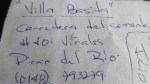 "Villa Basiri"
Carretera del cemente
#20. Viñales
Pinar del Rio
(0148) 793279